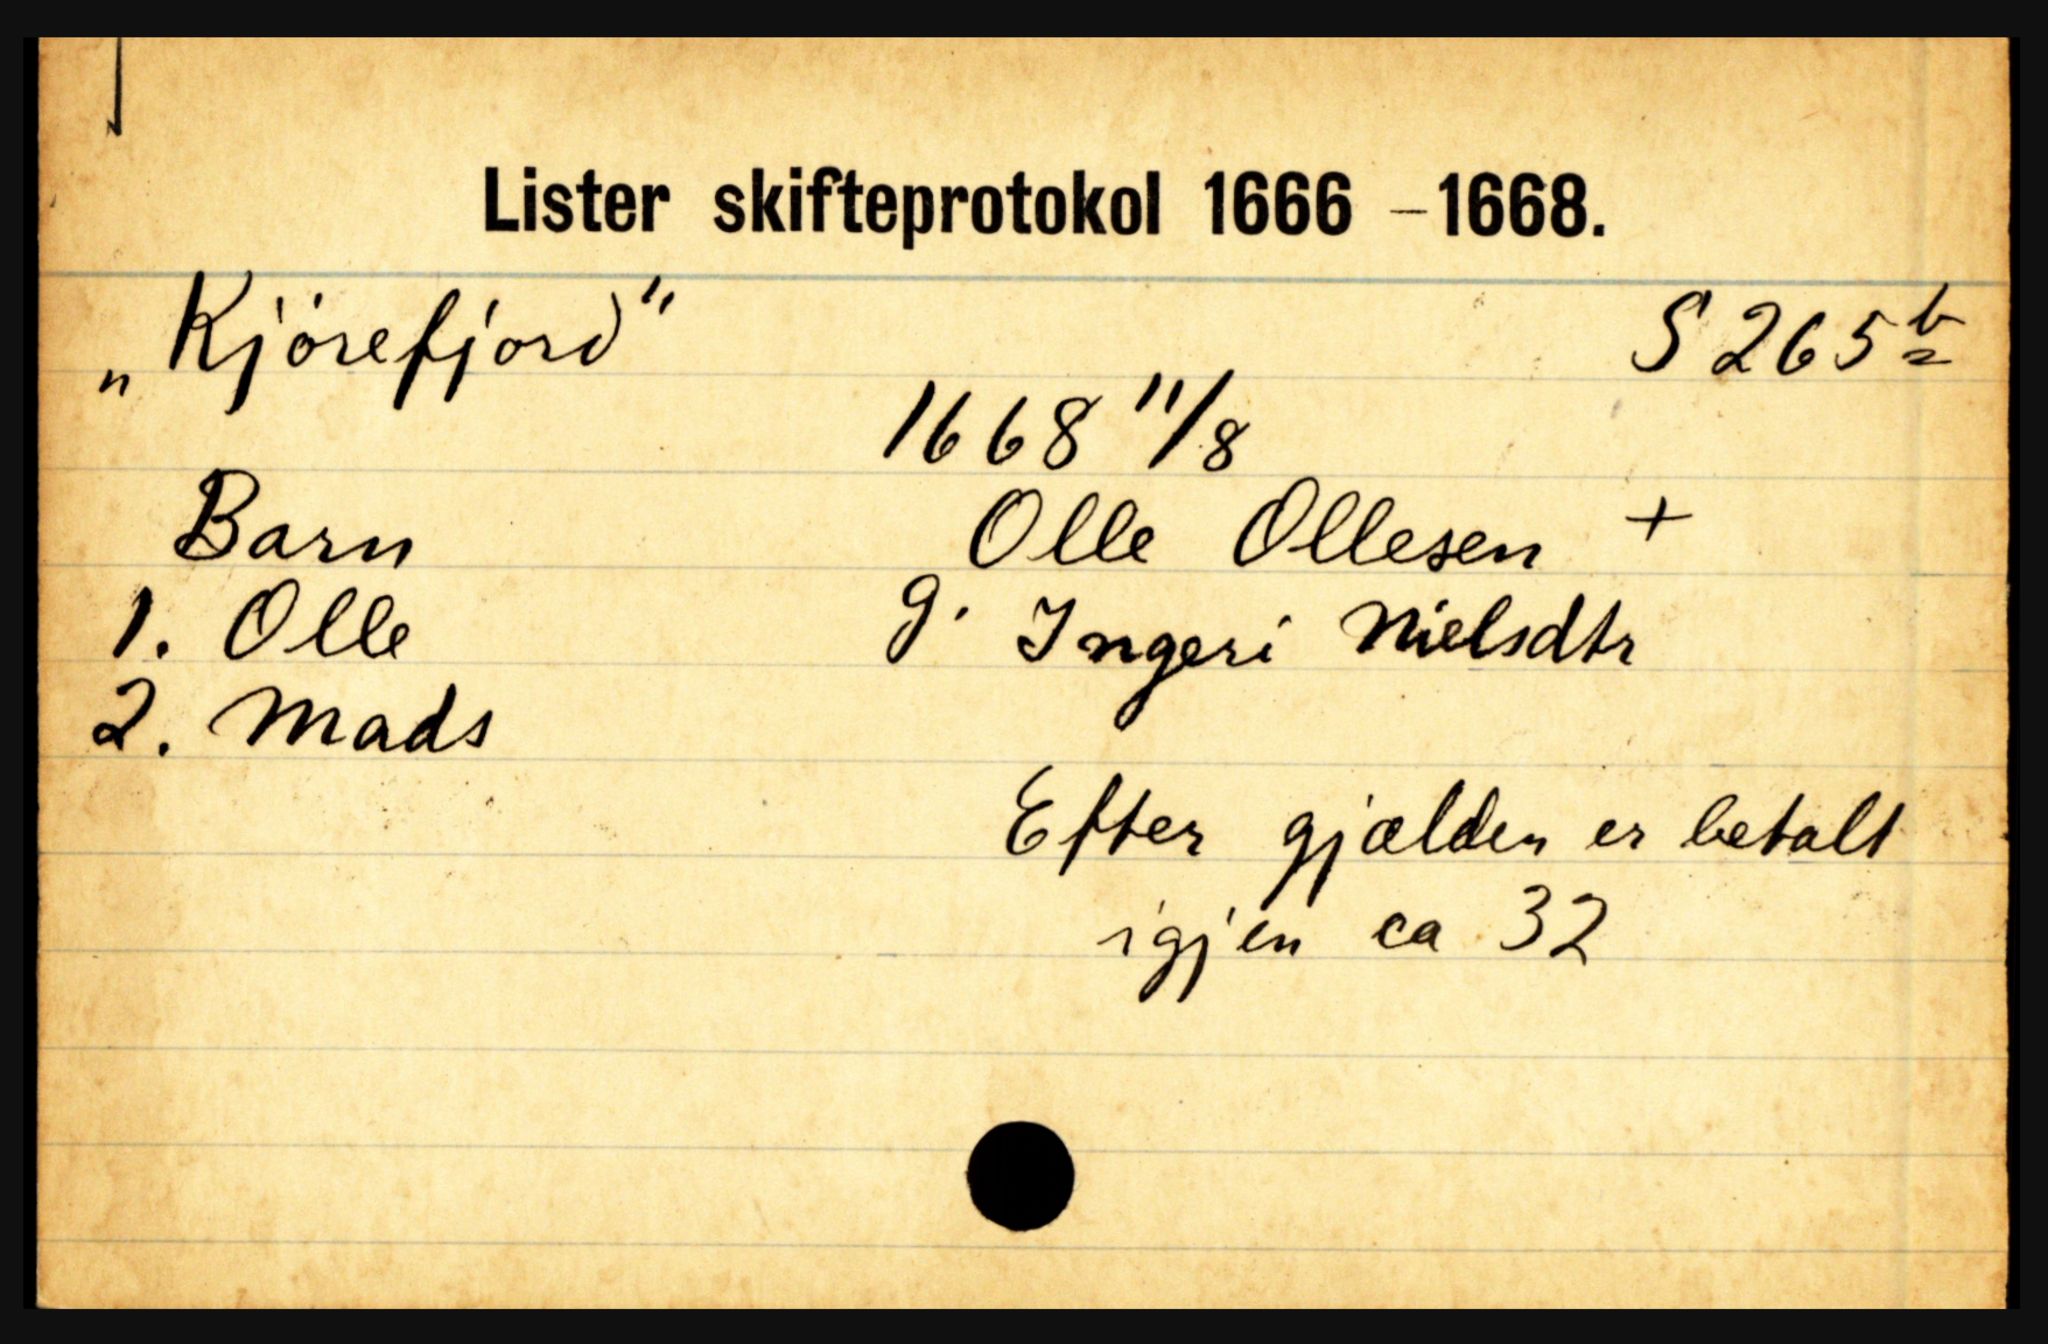 Lister skifteprotokol 1666 – 1668.
„Kjörefjord" S 265 b
1668 11/8
Barn Olle Ollesen +
1. Olle g. Ingeri Nielsdtr
2. Mads
Efter gjælden er betalt
igjen ca 32